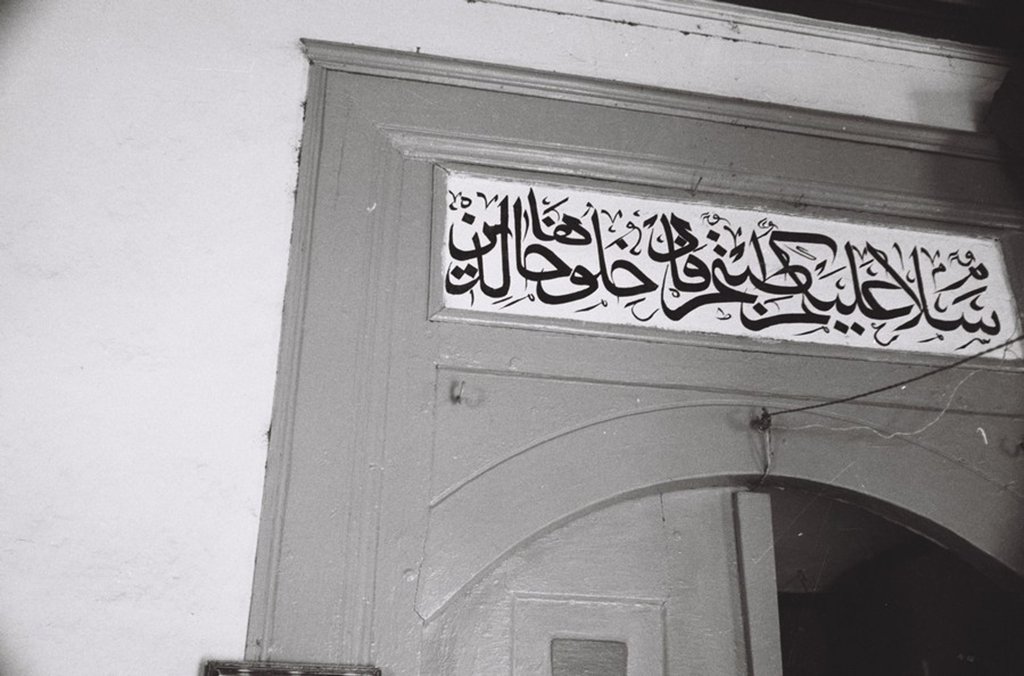 سَلَامٌ عَلَيْكُمْ طِبْتُمْ فَادْخُلُوهَا خَالِدِينَ